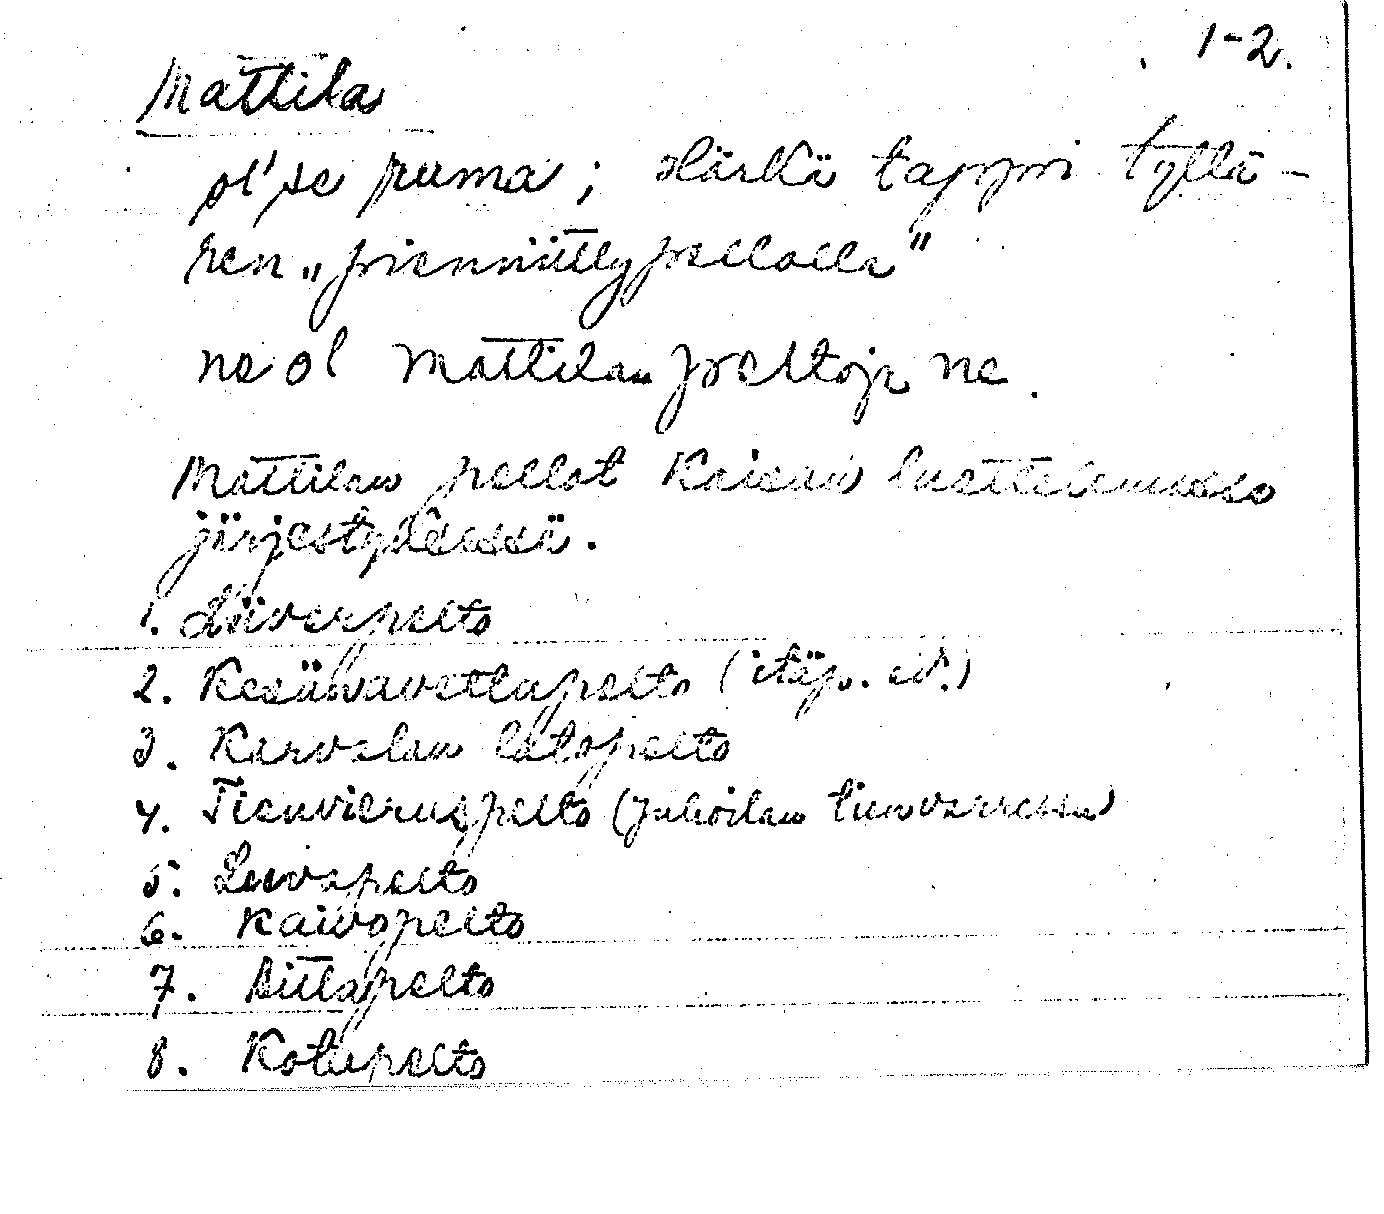 1-2.
Mattila
ol' se puma; Härkä tappoi tyttä-
ren „pienniittypellolla"
ne ol Mattilan peltoja ne.
Mattilan pellot Kaisan luettelemassa
järjestyksessä.
1. Liiverpelto
2. Kesänavettapelto (itäp.
3. Karvalan latopelto
4. Tienvieruspelto (Juhoilan tienvarressa)
5. Leivapelto
6. Kaivopelto
7. Riitapelto
8. Kotupelto